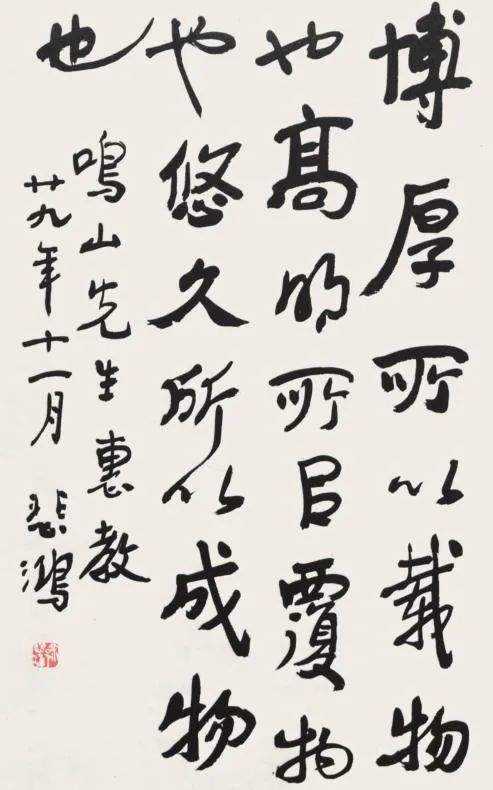 博厚所以載物
也高明所㠯覆物
也悠久所以成物
也
鳴山先生惠教
廿九年十一月 悲鴻